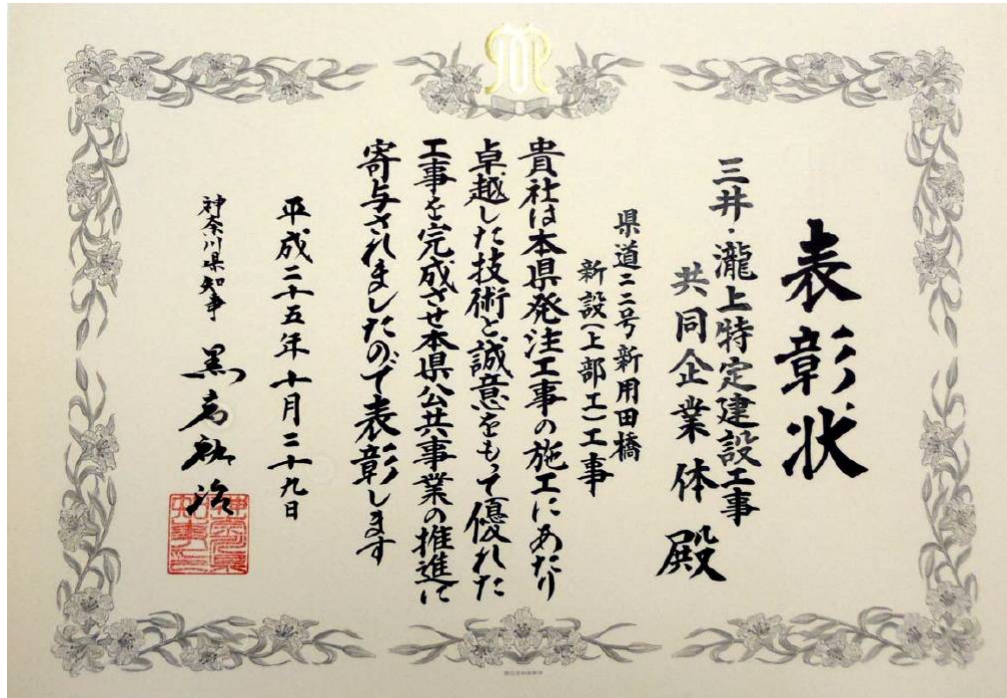 表彰状
三井・瀧上特定建設工事
共同企業体 殿
県道二二号新用田橋
新設(上部工)工事
貴社は本県発注工事の施工にあたり
卓越した技術と誠意をもって優れた
工事を完成させ本県公共事業の推進に
寄与されましたので表彰します
平成二十五年十月二十九日
神奈川県知事 黒岩祐治